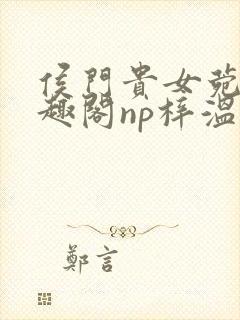 侯門貴女菀
趣閣np梓溫
鄭言